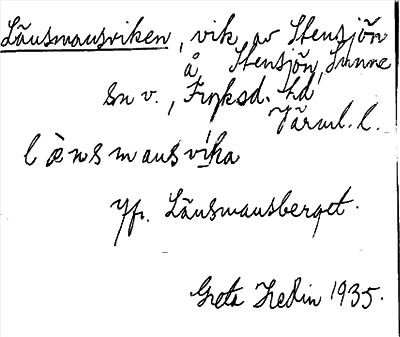 Länsmansviken, vik av Stensjön
å Stensjön, Sunne
sn v., Fryksd. hd
Värml. l.
lènsmansvíka
Jfr. Länsmansberget.
Greta Hedin 1935.